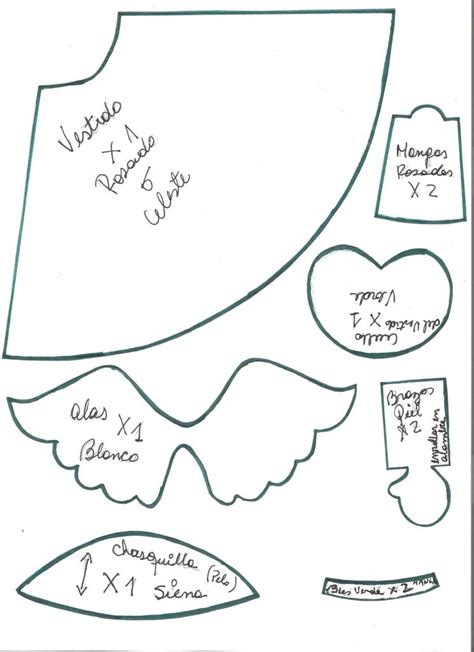 Vestido
X 1
Rosado
ó
Celeste
Mangas
Rosadas
X 2
Cuello
del Vestido X 1
Verde
alas
X1
Blanco
Brazos
Piel
X 2
enrollar en
alambre
Chasquilla
(Pelo)
X 1
Siena
Bies Verde X 2